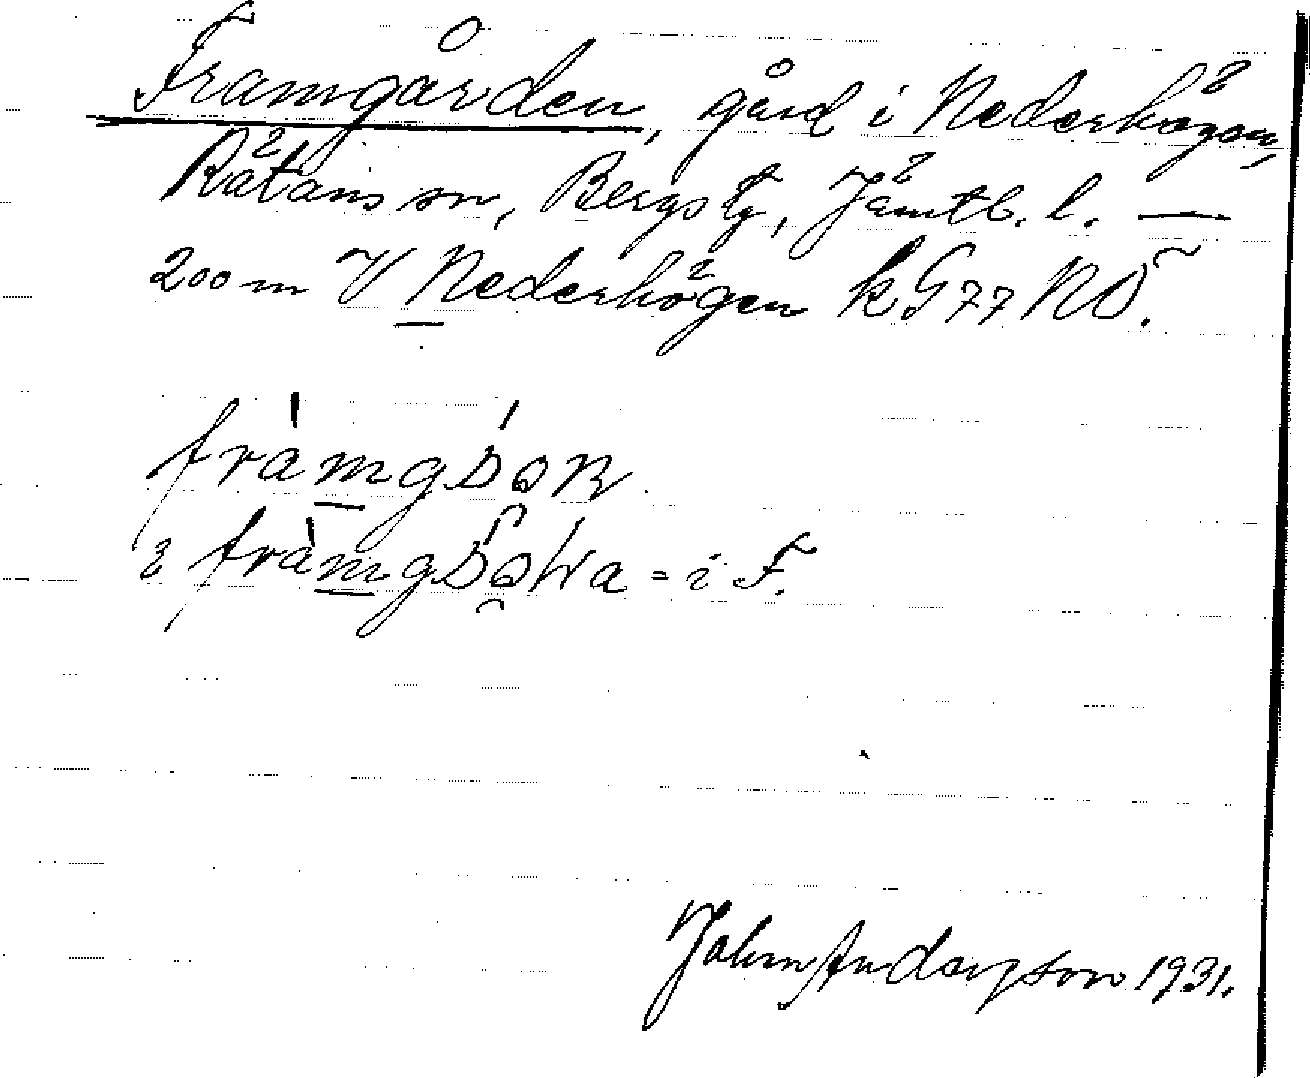 Framgården, gård i Nederhögen,
Rätans sn, Bergs tg, Jämtl. l. —
200 m V Nederhögen k G 77 NO.
i F.
John Anderson 1931.